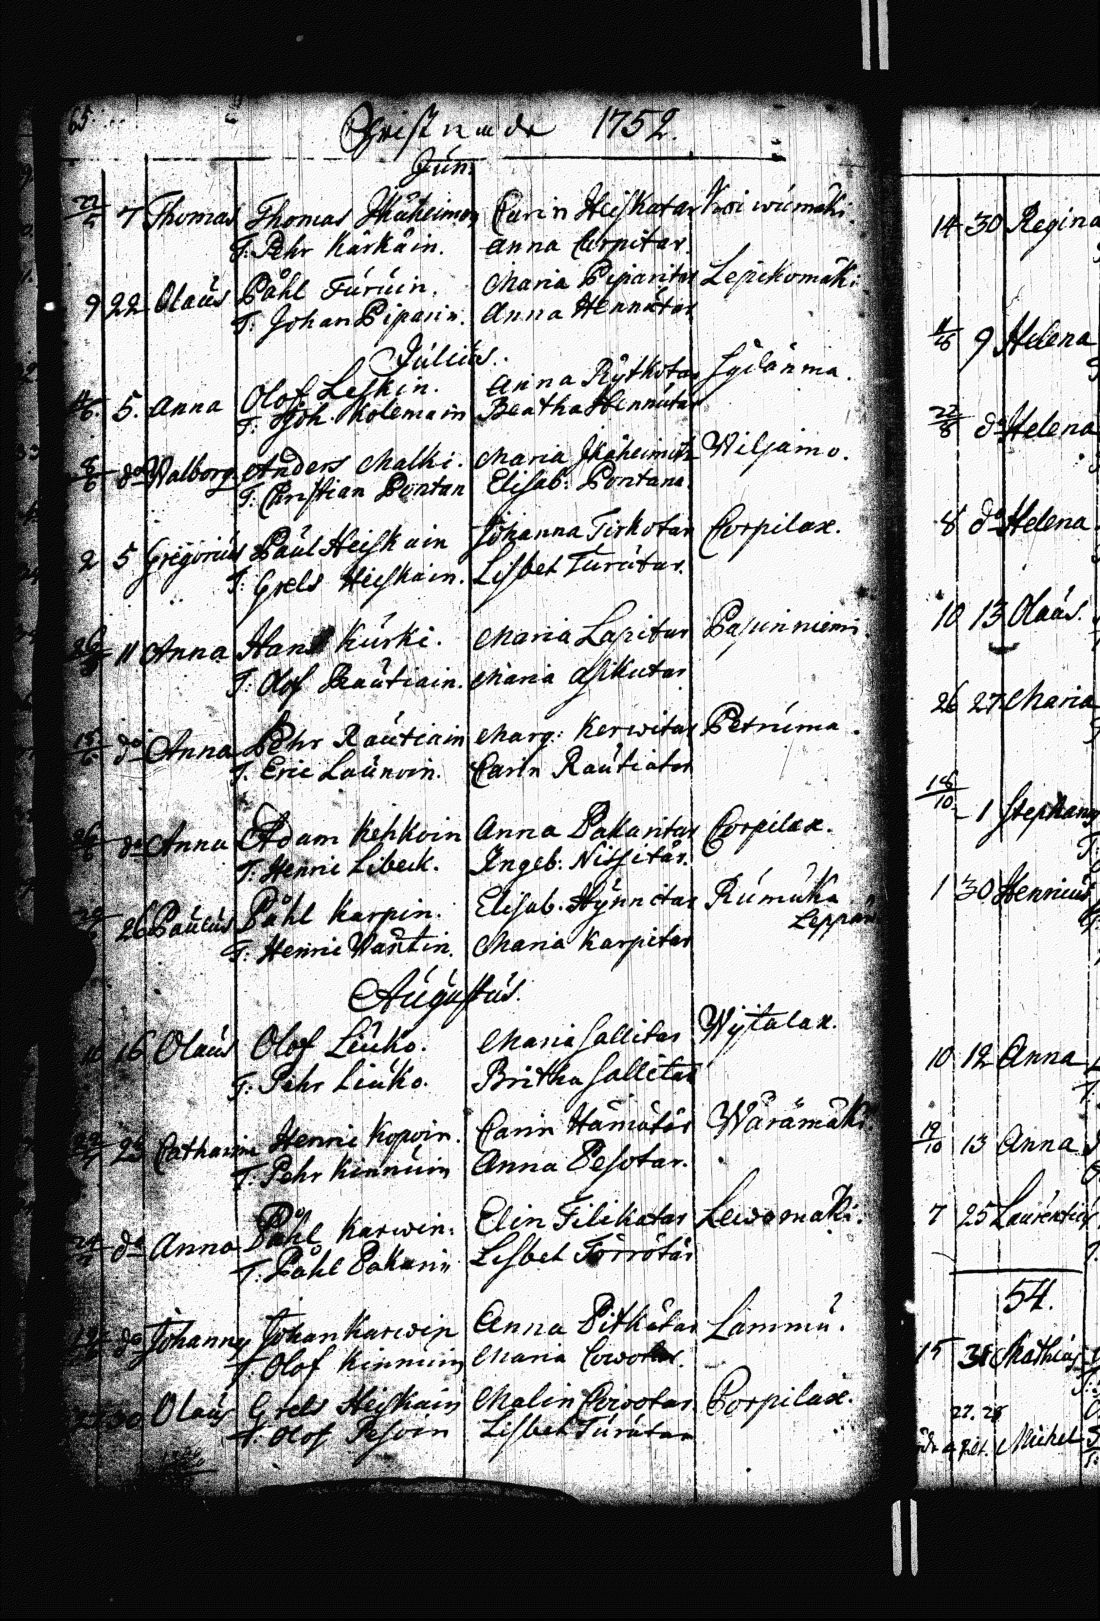 65.
Christnade 1752.
Jun:
22/5 7 Thomas Thomas Ikäheimon Carin Heiskatar Koiwúmäki.
T. Pehr Kärkäin. Anna Corpitar.
9 22 Olaús Påhl Túrúin. Maria Piparitar Lepikomäki:
T: Johan Piparin. Anna Hennútar
Július.
5. Anna Olof Leskin. Anna Rÿtkotar Sÿdänma.
T: Joh. Kolemain Beatha Hennútar
8/6 do Walborg Anders Malki. Maria Ikäheimotar Wiljamo.
T: Christian Pontan Elisab: Pontana.
2 5 Gregoriús Paúl Heiskain Johanna Tirkotar Corpilax.
T: Grels Heiskain. Lisbet Túrútar.
11 Anna Hans Kúrki. Maria Lapitar Pasunniemi
T: Olof Raútiain. Maria Asikatar
do Anna Pehr Raútiain Marg: Kerwitar Petrúma.
T. Eric Laúnoin. Carin Raútiatar
26/6 do Anna Adam Kehkoin Anna Pakaritar Corpilax.
T: Henric Libeck. Ingeb: Nissitär.
26 Paúlús Påhl Karpin. Elisab: Hÿnnitar Rúmúka
Leppä
T: Henric Wäntin. Maria Karpitar
Aúgústús.
10 16 Olaús Olof Leúko. Maria Sallitar Wijtalax.
T: Pehr Liúko. Britha Sallitar
23 Catharin Henric Kopoin. Carin Hämätär Wäräinäki.
T: Pehr Kinnúin Anna Pesotar.
do Anna Påhl Karwin: Elin Filikatar Lewomäki.
T: Påhl Pakarin Lisbet Törrötär
do Johannes Johan Karwin Anna Pitkätar Lammú.
T. Olof Kinnúin Maria
30 Olaús Grels Heiskain Malin Corpilax.
T. Olof Lisbet Túrútar
14 30 Regina
9 Helena
22/8 do Helena
8 do Helena
10 13 Olaús.
26 27 Maria
18/10 1 Stephanus
1 30 Henricús
10 12 Anna
19/10 13 Anna
7 25 Laúrentiús
54.
15 31 Mathias
27. 28
Michel